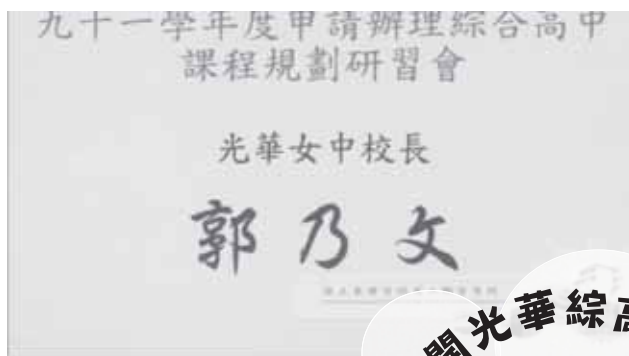 九十一學年度申請辦理綜合高中
課程規劃研習會
光華女中校長
郭乃文
光華綜高